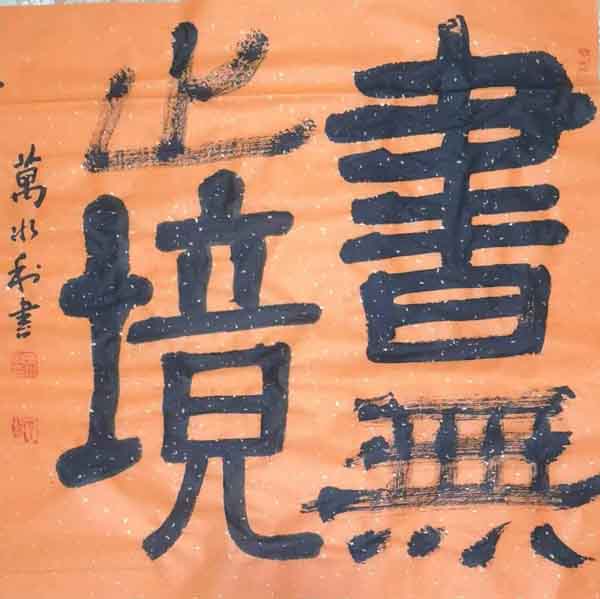 書無
止境
萬水利書